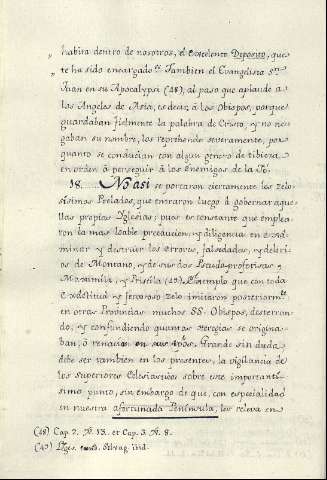 „ habita dentro de nosotros, el excelente Deposito, que
„ te ha sido encargado. Tambien el Evangelista Sn.
Juan en su Apocalypsi (48), al paso que aplaude a
los Angeles de Asia, es decir, à los Obispos, porque
guardaban fielmente la palabra de Cristo, y no ne-
gaban su nombre, los reprehende severamente, por
quanto se conducian con algun genero de tibieza,
en orden à perseguir à los Enemigos de la Fè.
18. No asi se portaron ciertamente los zelo-
sisimos Prelados, que entraron luego à gobernar aque-
llas propias Yglesias; pues es constante que emplea-
ron la mas loable precaucion, y diligencia en exter-
minar y destruir los errores, falsedades, y deliri-
os de Montano, y de sus dos Pseudo-profetisas
Maximila, y Priscila (49). Exemplo que con toda
exactitud y fervoroso zelo imitaron posteriormte.
en otras Provincias muchos SS. Obispos, desterran-
do, y confundiendo quantas heregias se origina-
ban, ò renacian en sus dias. Grande sin duda
debe ser tambien en los presentes, la vigilancia de
los Superiores Eclesiasticos sobre este importantí-
simo punto, sin embargo de que, con especialidad
en nuestra afortunada Peninsula, les releva en
(48) Cap. 2. V. 13. et Cap. 3. V. 8.
(49) Selvag. ind.